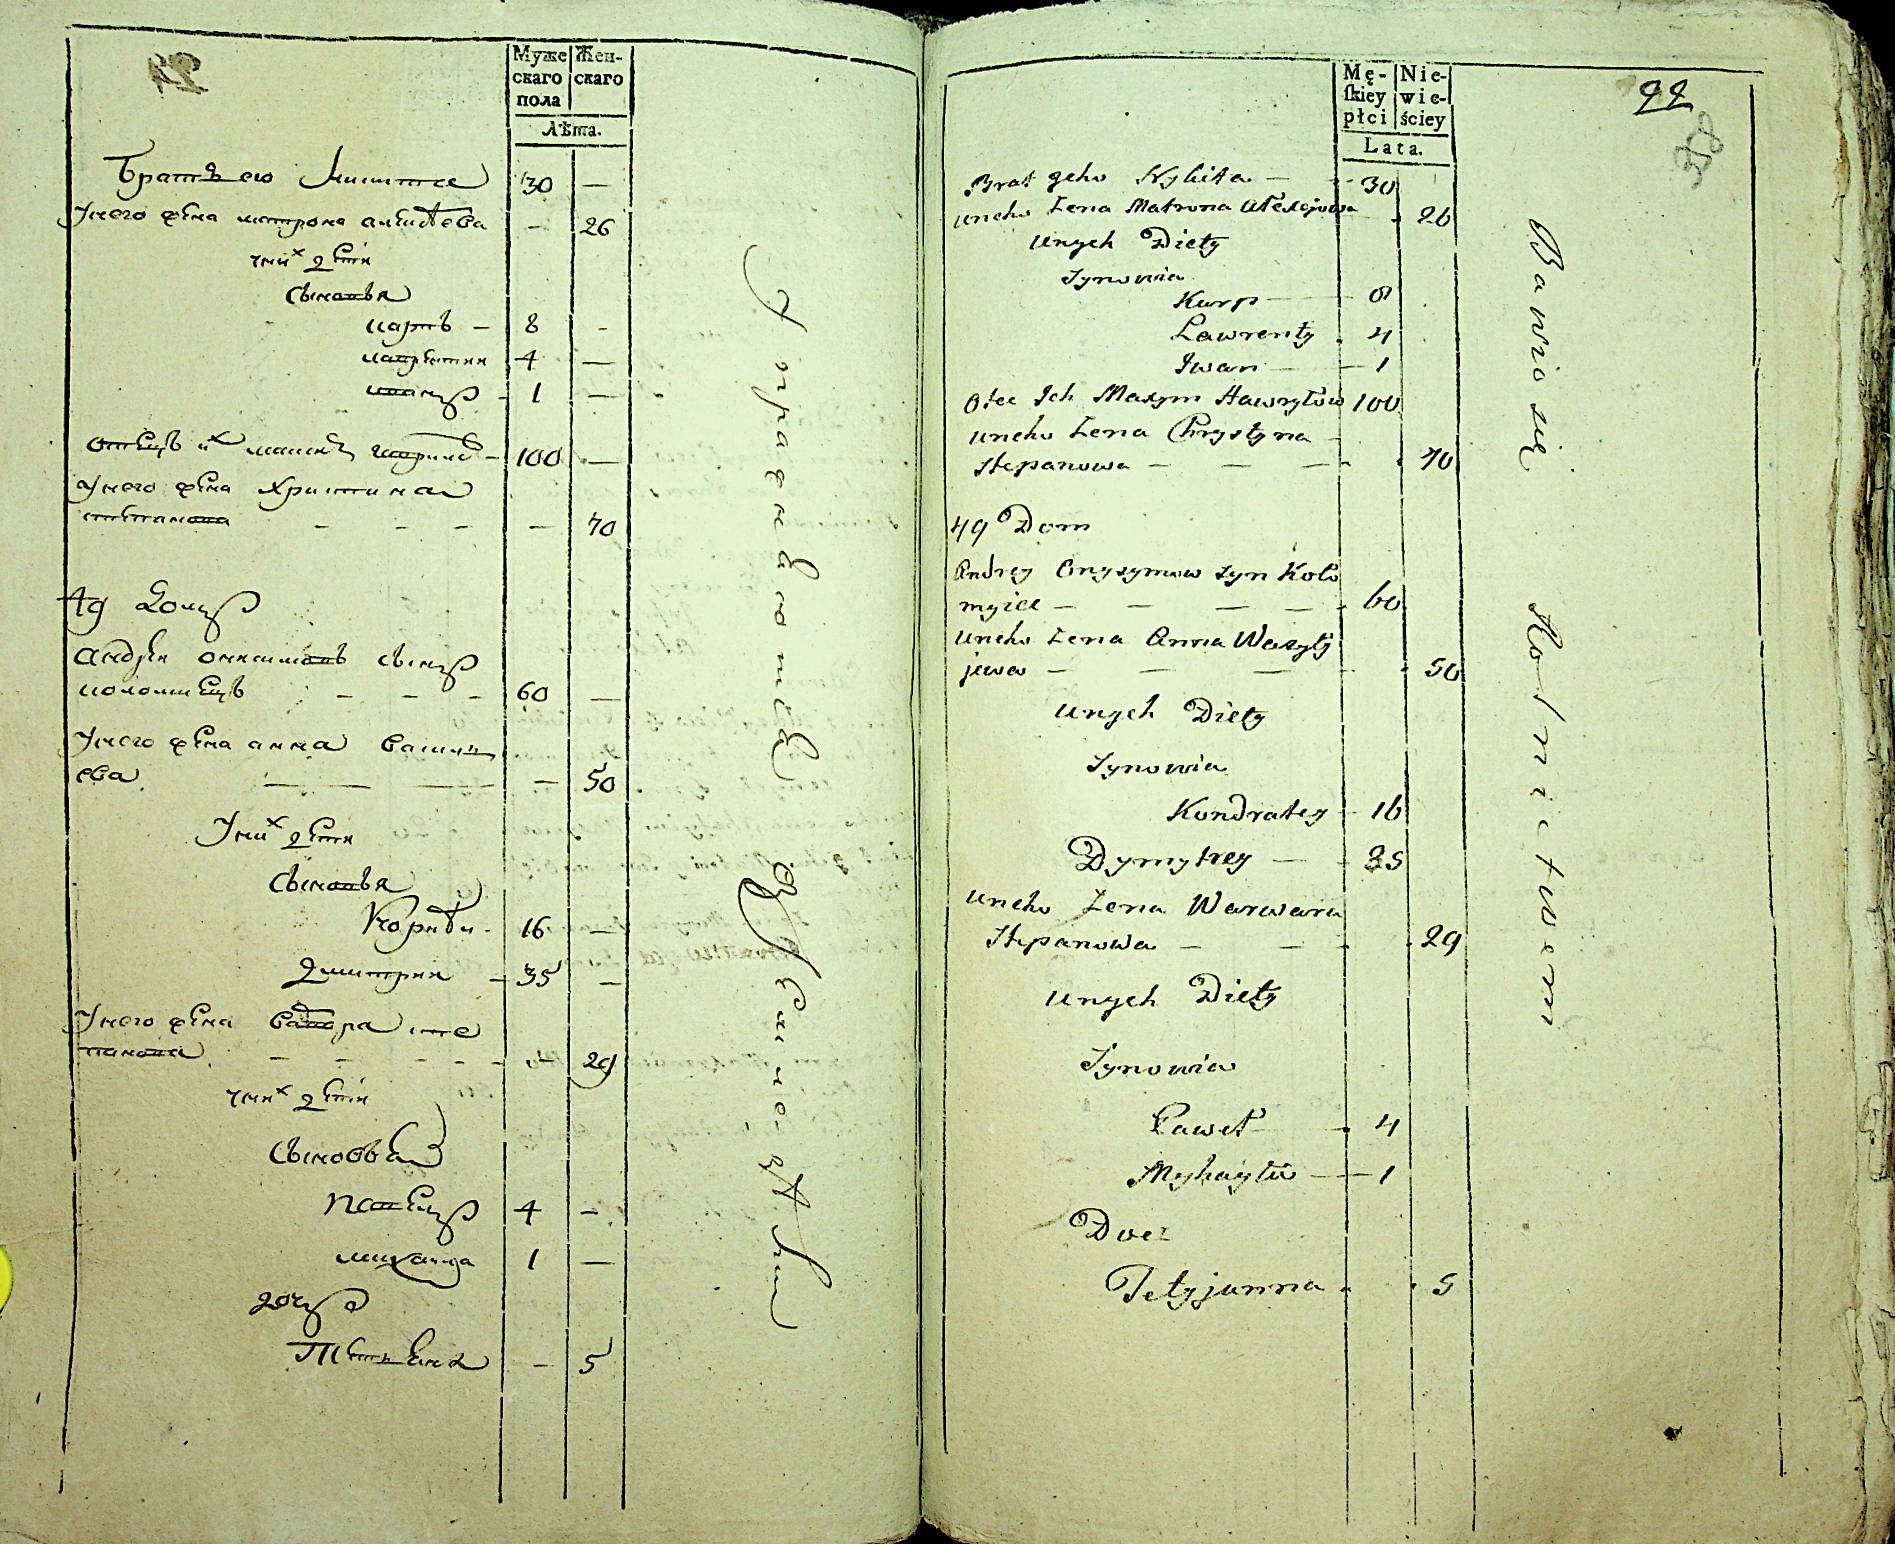 Муже Жен-
скаго скаго
пола
Лѣта.
Братъ его Микитае 30 —
Унего жена матрона алексѣева — 26
уних дети
Сыновья
карпъ — 8 -
лаврентии 4 —
иванъ - 1 —
отецъ их максимъ гаврилов — 100 —
Унего жена Христина
степанова - - - — 70
49 Домъ
андреи онисимовъ сынъ
коломиецъ - - - 60 —
Унего жена анна васили
ева — — — — 50
Уних дети
Сыновья
16 —
димитрии - 35 —
Унего жена Варвара сте
панова - - - - — 29
уних дети
Сыновья
Павелъ 4 -
михаила 1 —
дочь
Тетияна — 5
Упражняются
Mę- Nie-
skiey wie-
płci ściey
Lata.
99
Brat jeho Nykita — 30
uneho Żena Matrona Ałexejowa 26
unych Diety
Synowia
Karp — 8
Lawrenty 4
Iwan — 1
Otec Ich Maxym Hawryłów 100
uneho Żena Chrystyna —
Stepanowa — — — 70
49 Dom
Andrey Onysymow syn Koło
myiec — — — — 60
uneho Żena Anna Wasyly
jewa — — — 50
unych Diety
Synowia
Kondratey - 16
Dymytrey — 35
uneho Żena Warwara
Stepanowa — — 29
unych Diety
Synowia
Paweł 4
Myhayło — 1
Docz
Tetyjanna 5
Bawio się Rolnictwem